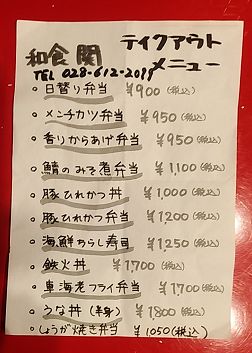 和食 関 テイクアウト
TEL 028-612-2099 メニュー
○ 日替り弁当 ¥900(税込)
○ メンチカツ弁当 ¥950(税込)
○ 香りからあげ弁当 ¥950(税込)
○ 鯖のみそ煮弁当 ¥1,100(税込)
○ 豚ひれかつ丼 ¥1,000(税込)
○ 豚ひれかつ弁当 ¥1200(税込)
○ 海鮮ちらし寿司 ¥1,250(税込)
○ 鉄火丼 ¥1,700(税込)
○ 車海老フライ弁当 ¥1,700(税込)
○ うな丼(半身) ¥1800(税込)
○ しょうが焼き弁当 ¥1050(税込)